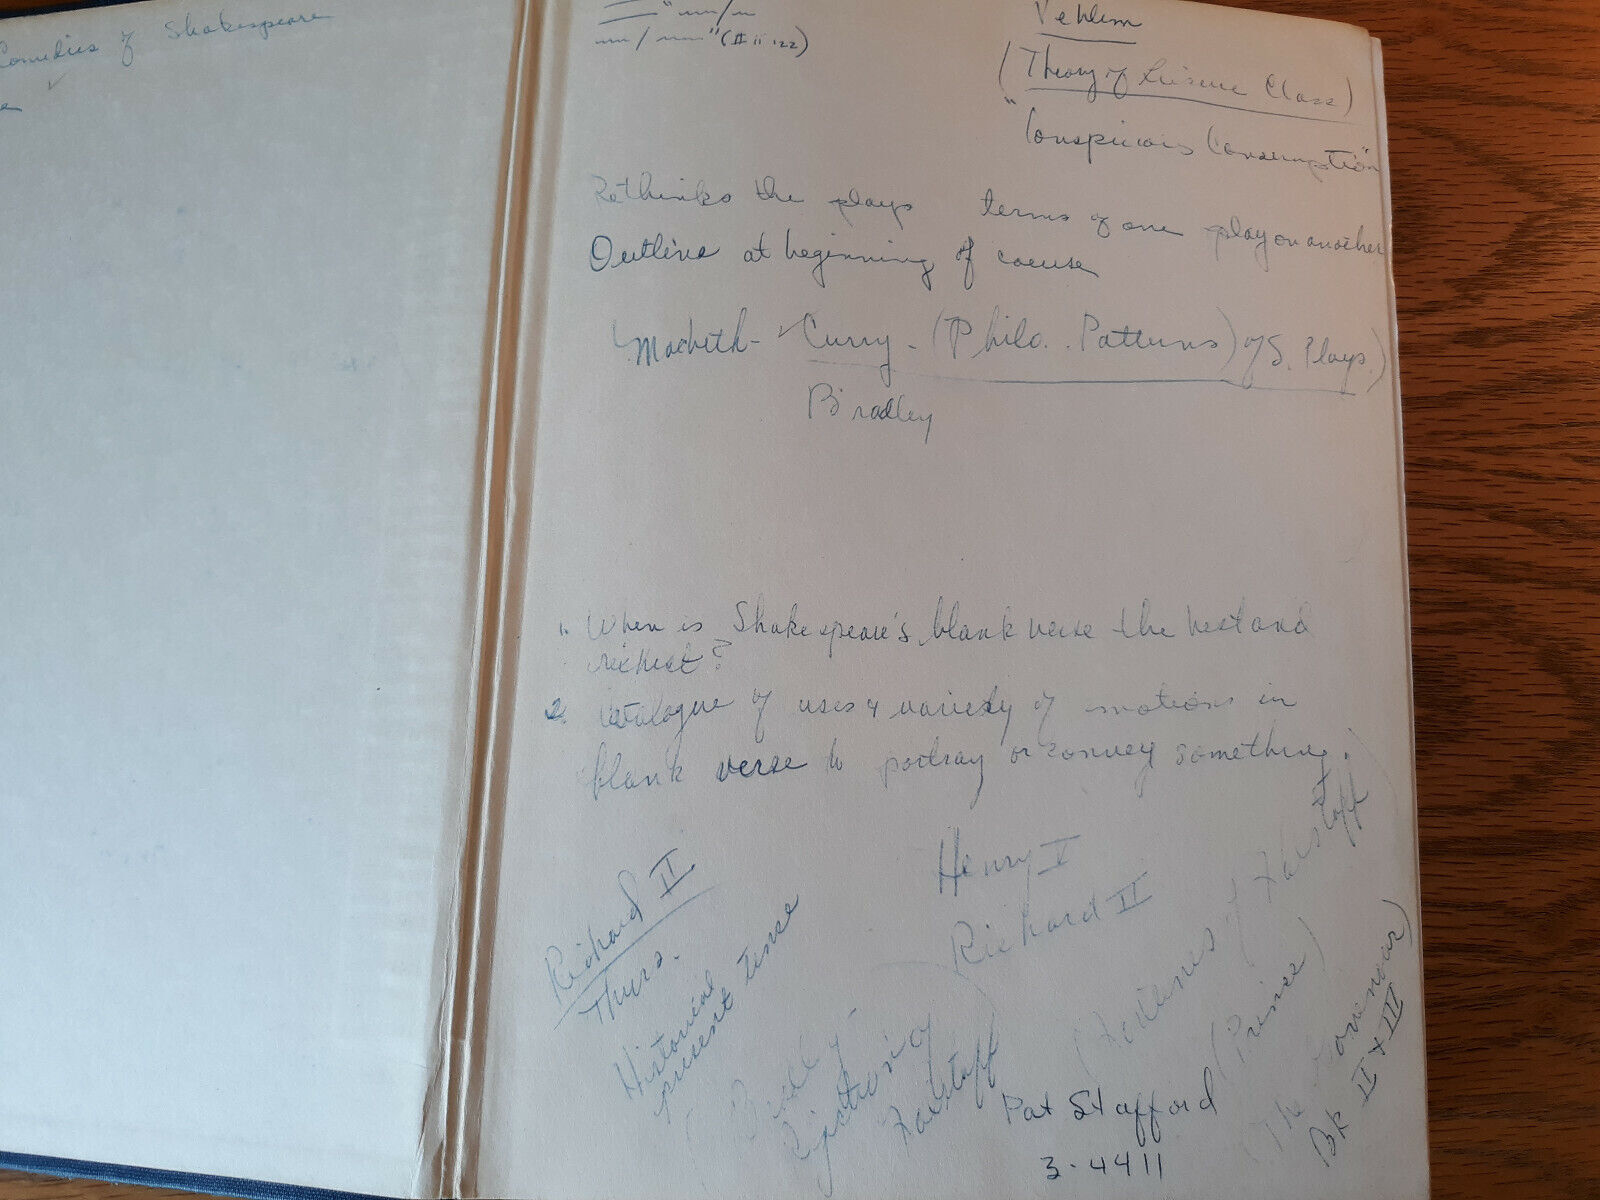 Comedies of Shakespeare
(II ii 122)
Veblem
(Theory of Leisure Class)
"Conspicious Consumption"
Rethinks the plays terms of one play on another
Outline at beginning of course
Macbeth - Curry - (Philo. Patterns) of S. Plays.)
Bradley
1. When is Shakespeare's blank verse the best and
richest?
2. Catalogue of uses & variety of motions in
blank verse to portray or convey something.
Henry V
Richard II
Richard II
Thurs.
Historical
present tense
Rejection of
Falstaff
of Falstaff
(Prince)
Pat Stafford
3-4411
(The Governour)
Bk II + III